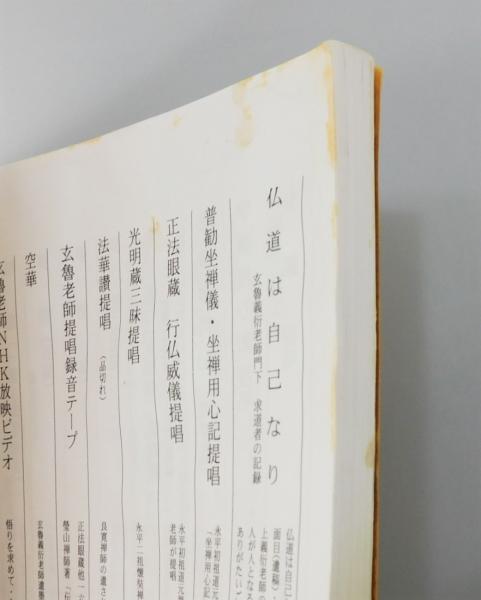 仏道は自己なり
玄魯義衍老師門下 求道者の記録
仏道は自己
面目(遺稿)
上義衍老師の
人が人となる
ありがたいご
普勧坐禅儀・坐禅用心記提唱
永平初祖道元
「坐禅用心記
正法眼蔵 行仏威儀提唱
永平初祖道元
老師が提唱
光明蔵三昧提唱
永平二祖懐奘禅
法華讃提唱(品切れ)
良寛禅師の遺さ
玄魯老師提唱録音テープ
正法眼蔵他一六
瑩山禅師著「伝
空華
玄魯義衍老師遺墨
玄魯老師NHK放映ビデオ
悟りを求めて・